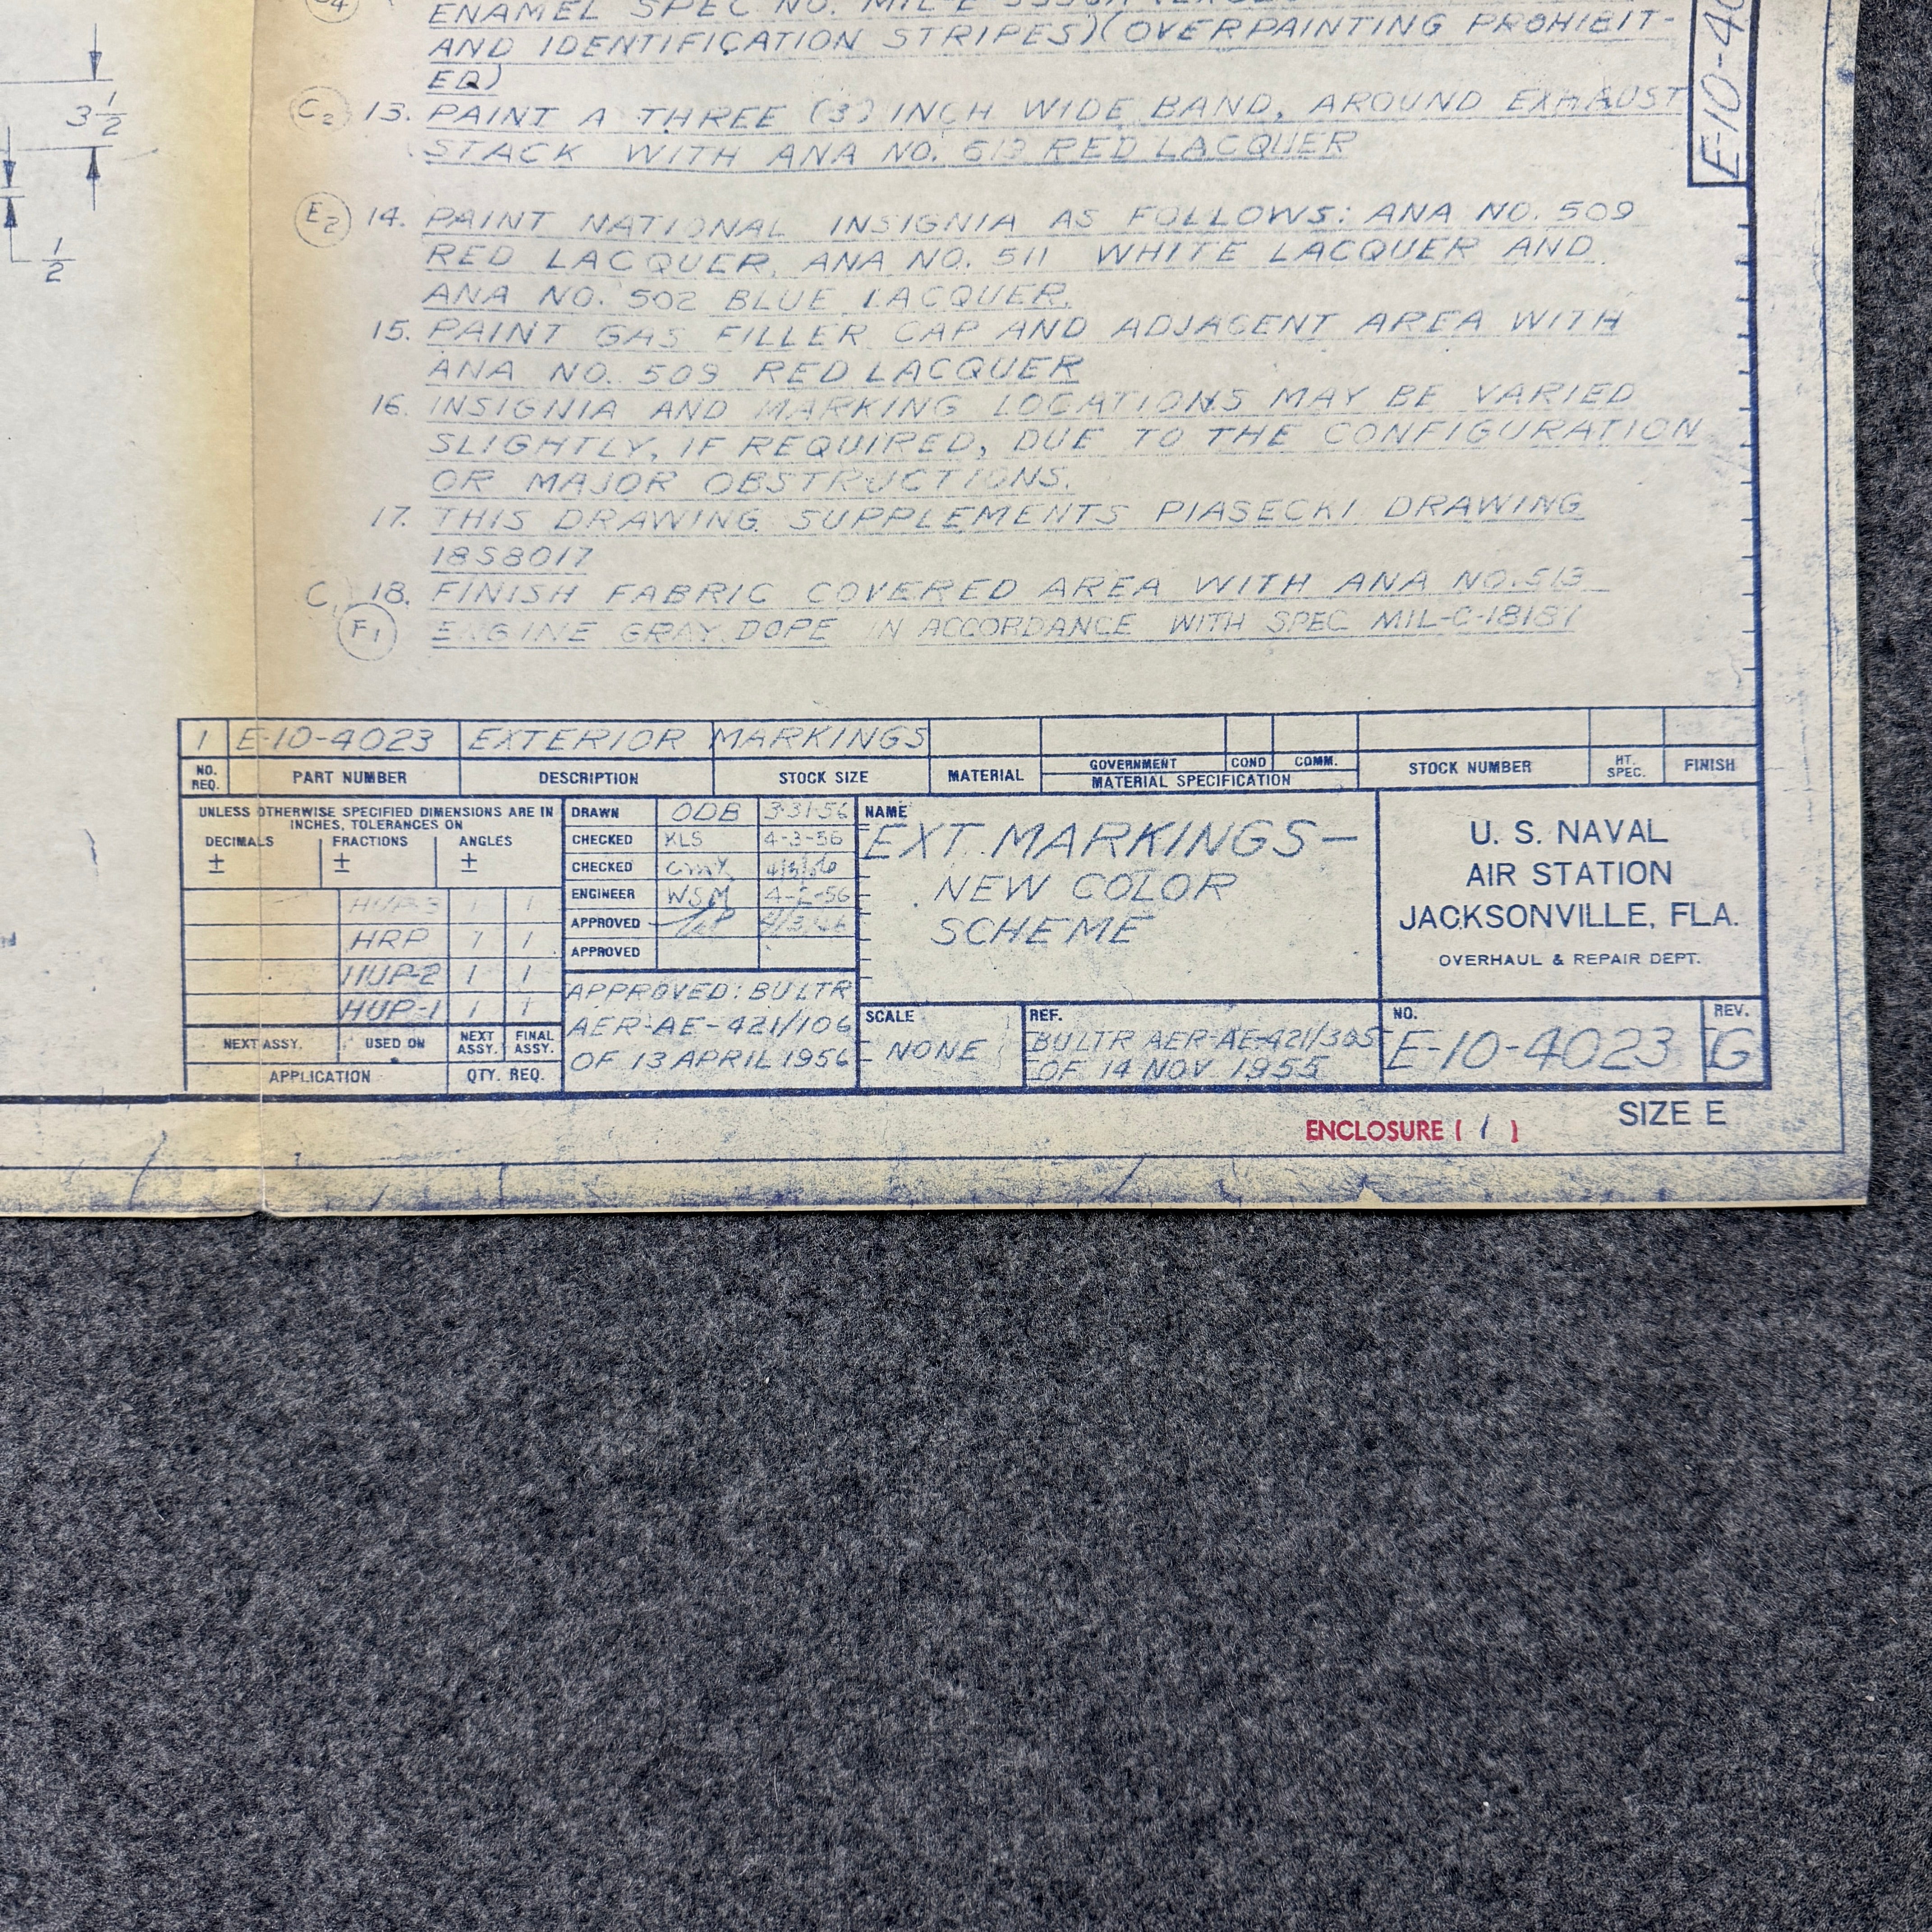 AND IDENTIFICATION STRIPES)(OVERPAINTING PROHIBIT-
ED)
C2 13. PAINT A THREE (3) INCH WIDE BAND, AROUND EXHAUST
STACK WITH ANA NO. 613 RED LACQUER
E2 14. PAINT NATIONAL INSIGNIA AS FOLLOWS: ANA NO. 509
RED LACQUER, ANA NO. 511 WHITE LACQUER AND
ANA NO. 502 BLUE LACQUER.
15. PAINT GAS FILLER CAP AND ADJACENT AREA WITH
ANA NO. 509 RED LACQUER
16. INSIGNIA AND MARKING LOCATIONS MAY BE VARIED
SLIGHTLY, IF REQUIRED, DUE TO THE CONFIGURATION
OR MAJOR OBSTRUCTIONS.
17. THIS DRAWING SUPPLEMENTS PIASECKI DRAWING
18S8017
C1 18. FINISH FABRIC COVERED AREA WITH ANA NO. 513
F1 ENGINE GRAY DOPE IN ACCORDANCE WITH SPEC MIL-C-18187
3 1/2
1/2
E-10-40
1 E-10-4023 EXTERIOR MARKINGS
NO. REQ. PART NUMBER DESCRIPTION STOCK SIZE MATERIAL GOVERNMENT COND COMM. MATERIAL SPECIFICATION STOCK NUMBER HT. SPEC. FINISH
UNLESS OTHERWISE SPECIFIED DIMENSIONS ARE IN
INCHES, TOLERANCES ON
DECIMALS FRACTIONS ANGLES
± ± ±
HUP-3 1 1
HRP 1 1
HUP-2 1 1
HUP-1 1 1
NEXT ASSY. USED ON NEXT ASSY. FINAL ASSY.
APPLICATION QTY. REQ.
DRAWN ODB 3-31-56
CHECKED KLS 4-3-56
CHECKED
ENGINEER WSM 4-2-56
APPROVED
APPROVED
APPROVED: BULTR
AER-AE-421/106
OF 13 APRIL 1956
NAME
EXT. MARKINGS—
NEW COLOR
SCHEME
SCALE
NONE
REF.
BULTR AER-AE-421/305
OF 14 NOV 1955
U. S. NAVAL
AIR STATION
JACKSONVILLE, FLA.
OVERHAUL & REPAIR DEPT.
NO.
E-10-4023
REV.
G
ENCLOSURE ( 1 )
SIZE E